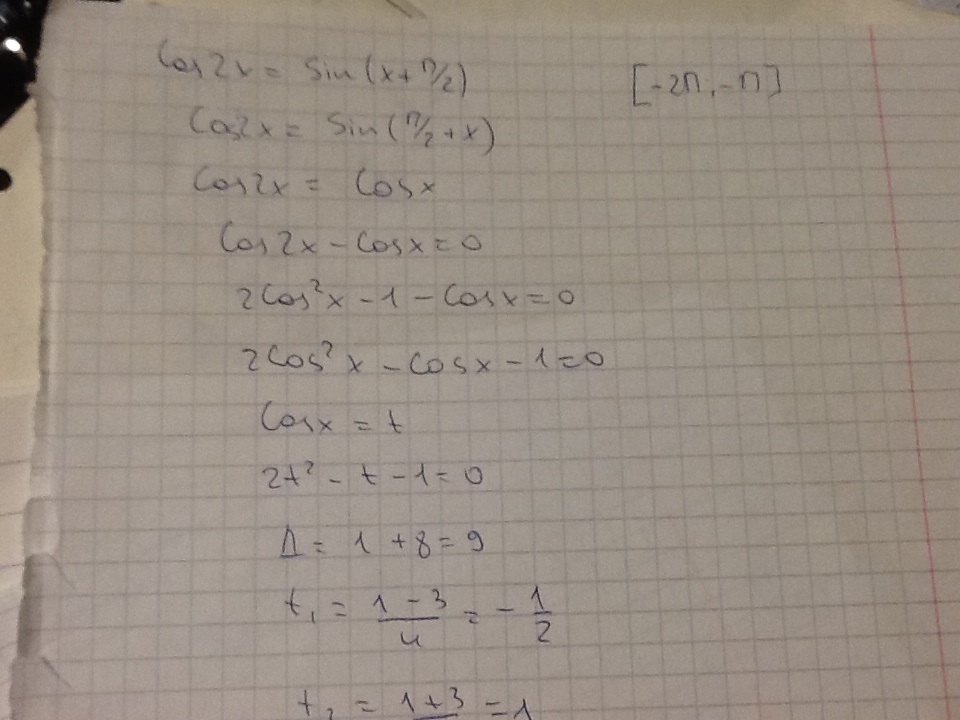 cos2x = sin(x+π/2) [-2π, -π]
cos2x = sin(π/2 + x)
cos2x = cosx
cos2x - cosx = 0
2cos²x - 1 - cosx = 0
2cos²x - cosx - 1 = 0
cosx = t
2t² - t - 1 = 0
Д = 1 + 8 = 9
t₁ = (1 - 3)/4 = - 1/2
t₂ = 1 + 3 = 1